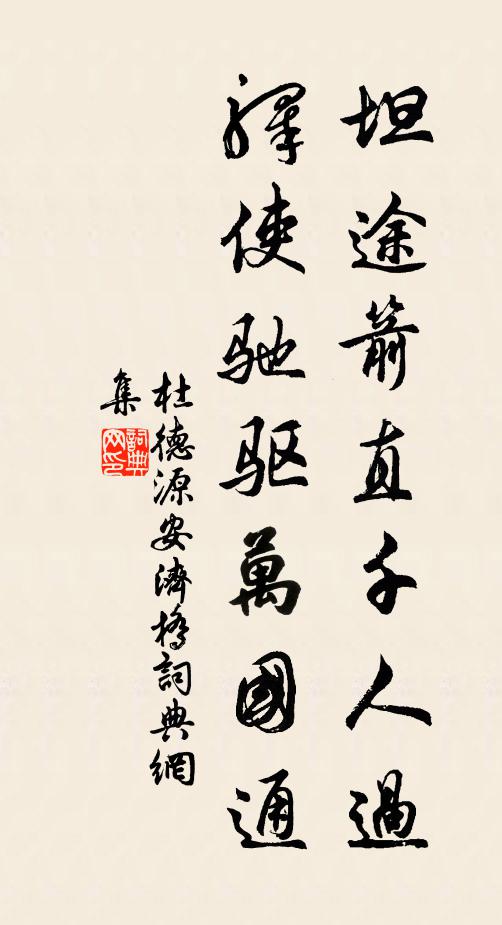 坦途箭直千人過
驛使馳驱萬國通
杜德源安濟橋詞典網
集
詞典网印